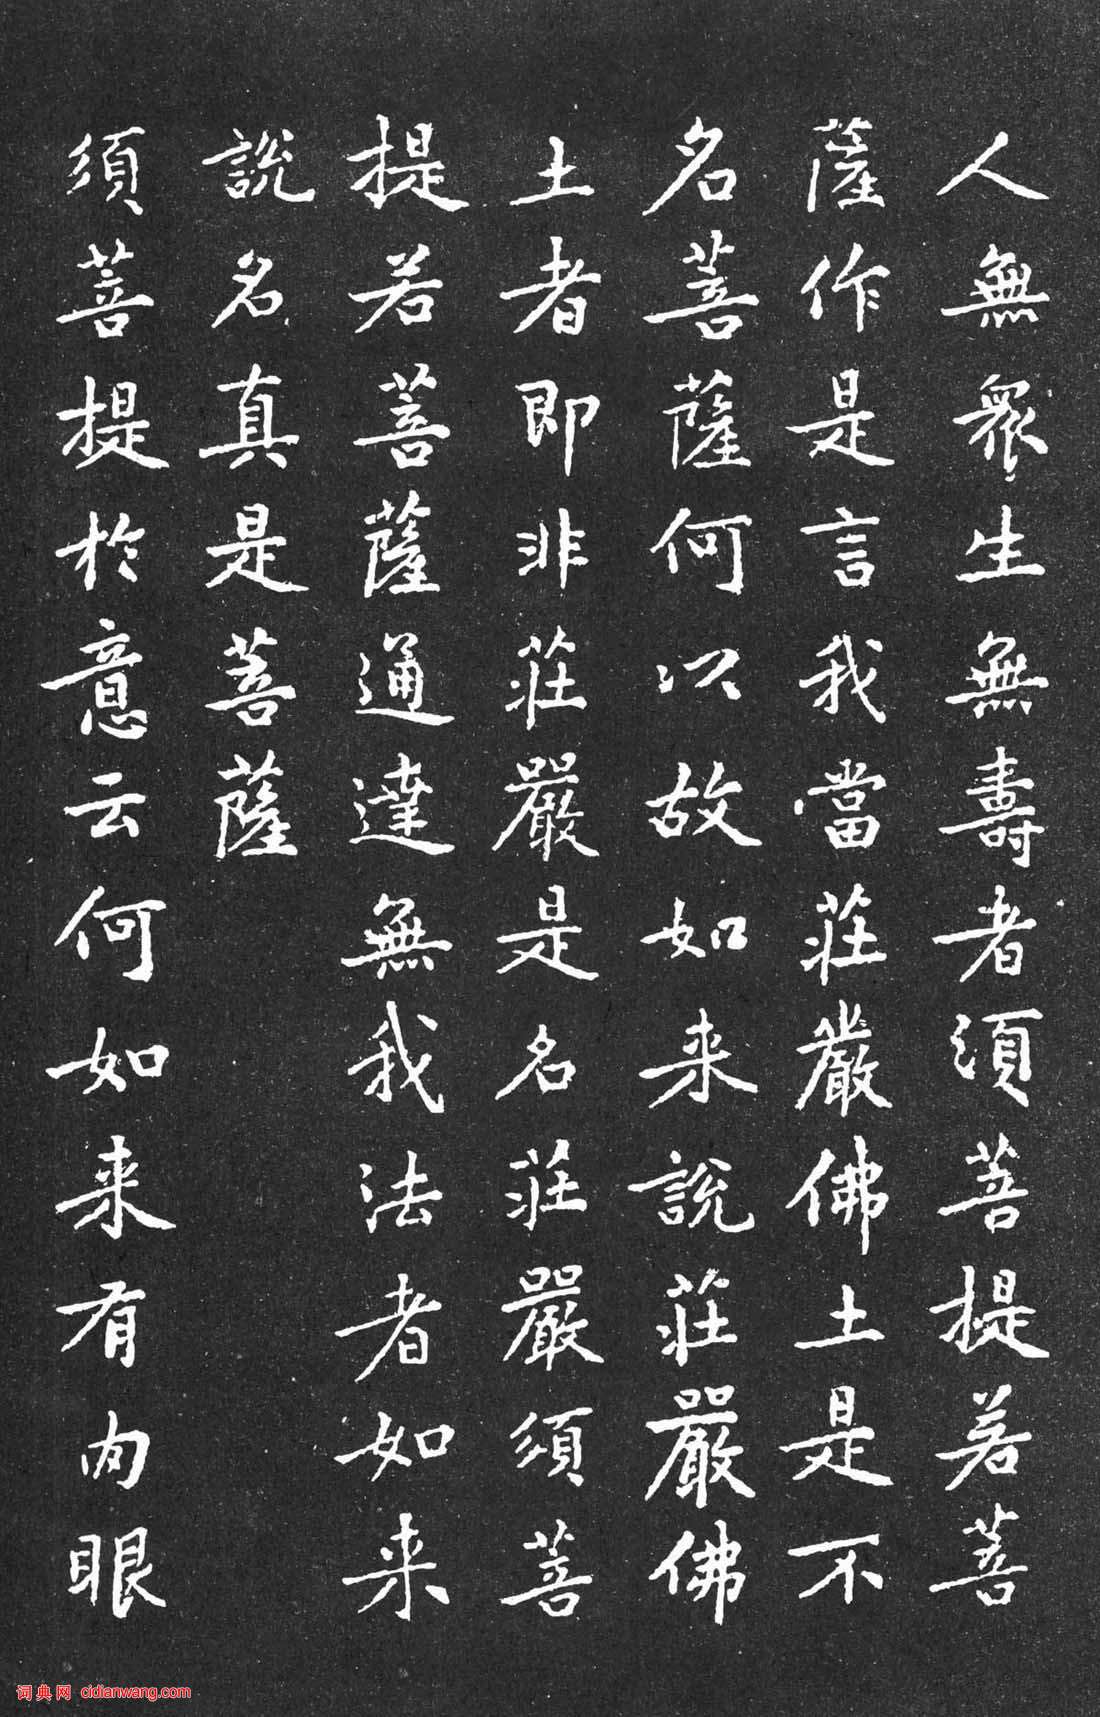 人無衆生無壽者須菩提若菩
薩作是言我當莊嚴佛土是不
名菩薩何以故如来說莊嚴佛
土者即非莊嚴是名莊嚴須菩
提若菩薩通達無我法者如来
說名真是菩薩
須菩提於意云何如来有肉眼
词典网 cidianwang.com